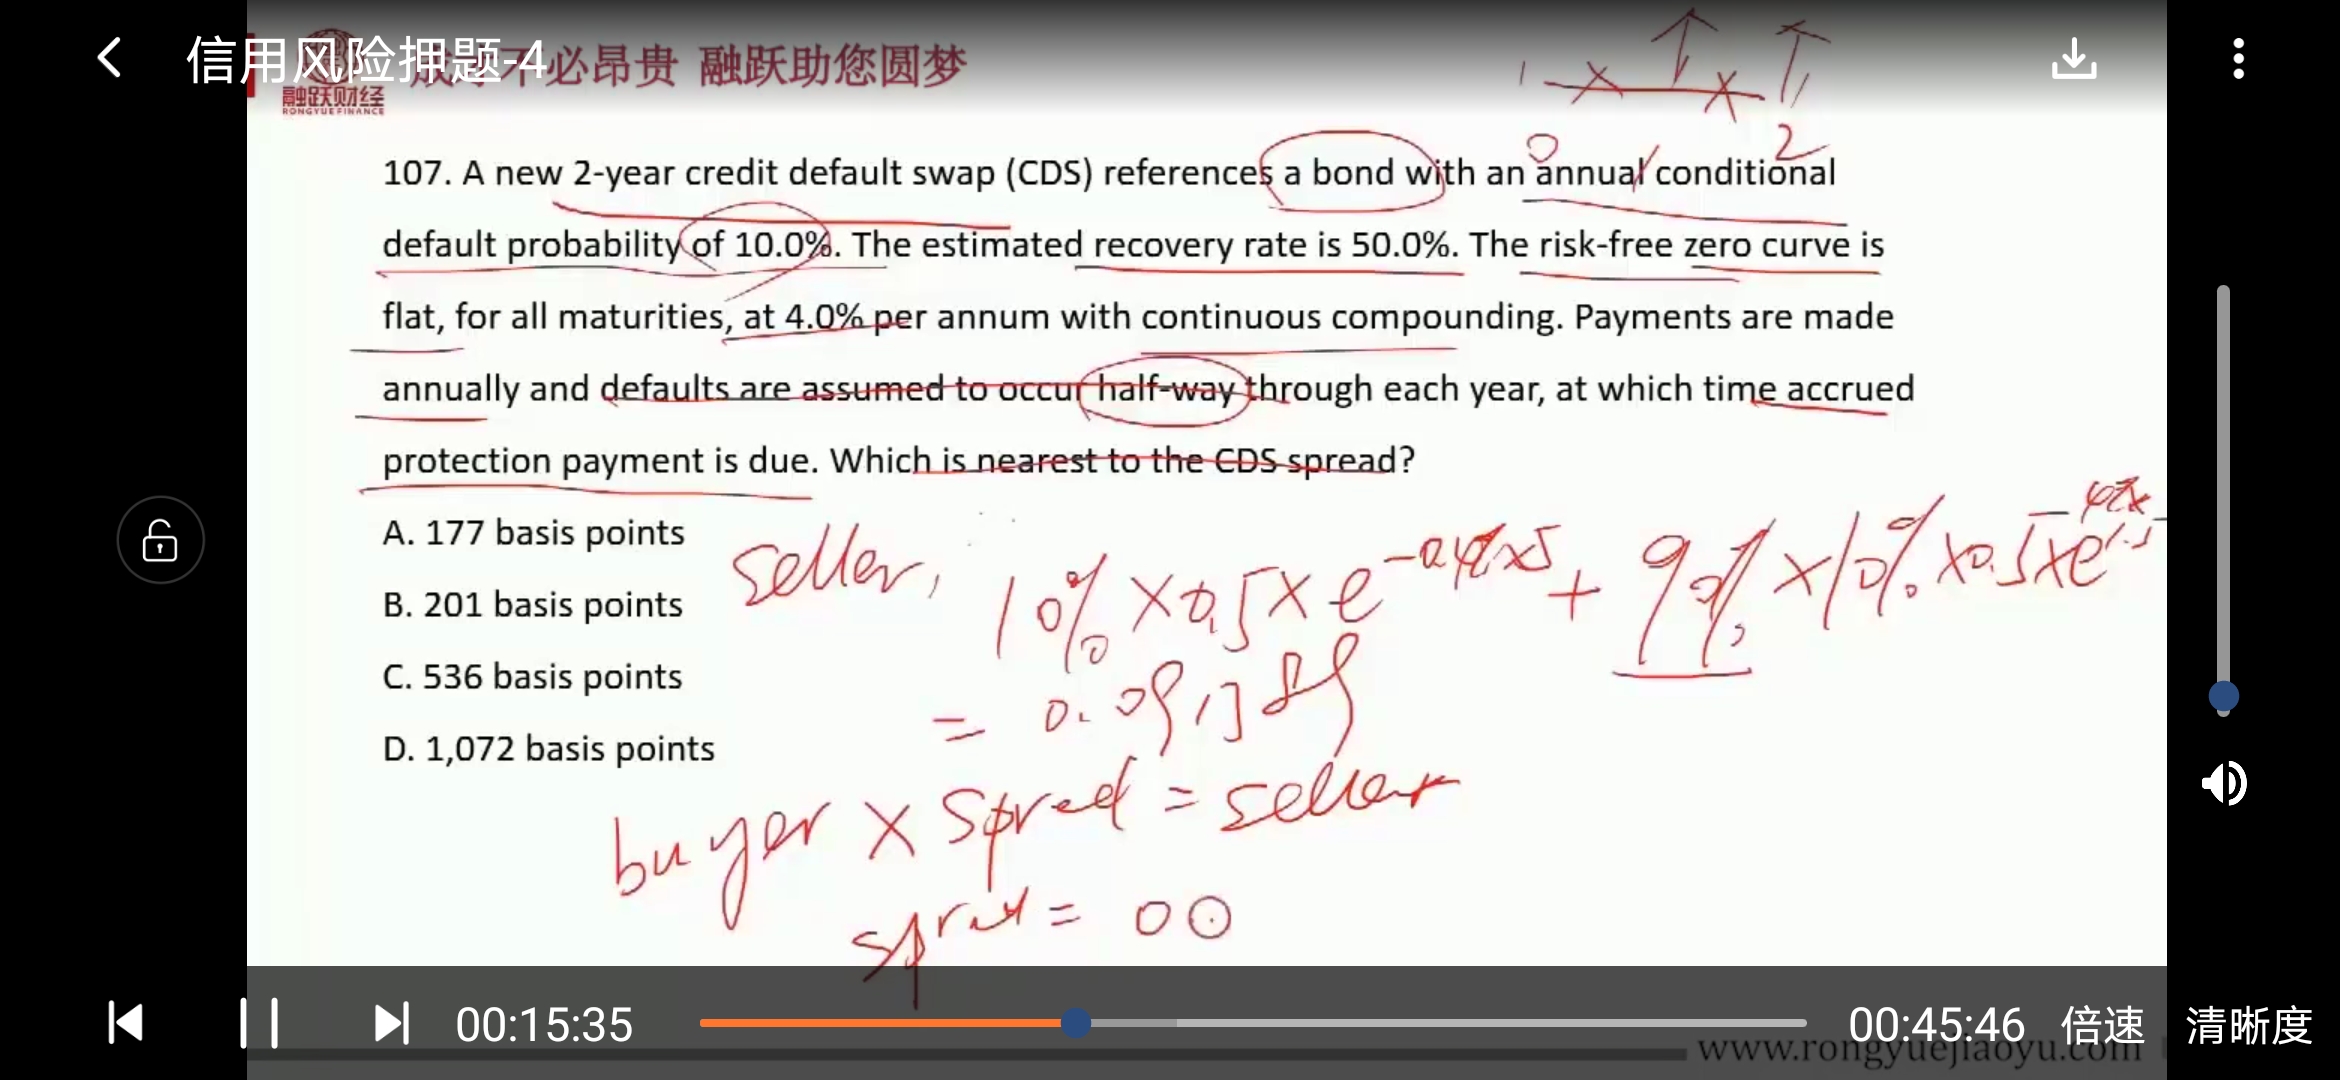 信用风险押题-4
不必昂贵 融跃助您圆梦
融跃财经
RONGYUEFINANCE
0 2
107. A new 2-year credit default swap (CDS) references a bond with an annual conditional
default probability of 10.0%. The estimated recovery rate is 50.0%. The risk-free zero curve is
flat, for all maturities, at 4.0% per annum with continuous compounding. Payments are made
annually and defaults are assumed to occur half-way through each year, at which time accrued
protection payment is due. Which is nearest to the CDS spread?
A. 177 basis points
B. 201 basis points
C. 536 basis points
D. 1,072 basis points
seller,
10% × 0.5 × e + 90% × 10% × 0.5 × e
= 0.09
buyer × Spred = seller
= 00
00:15:35
00:45:46 倍速 清晰度
www.rongyuejiaoyu.com